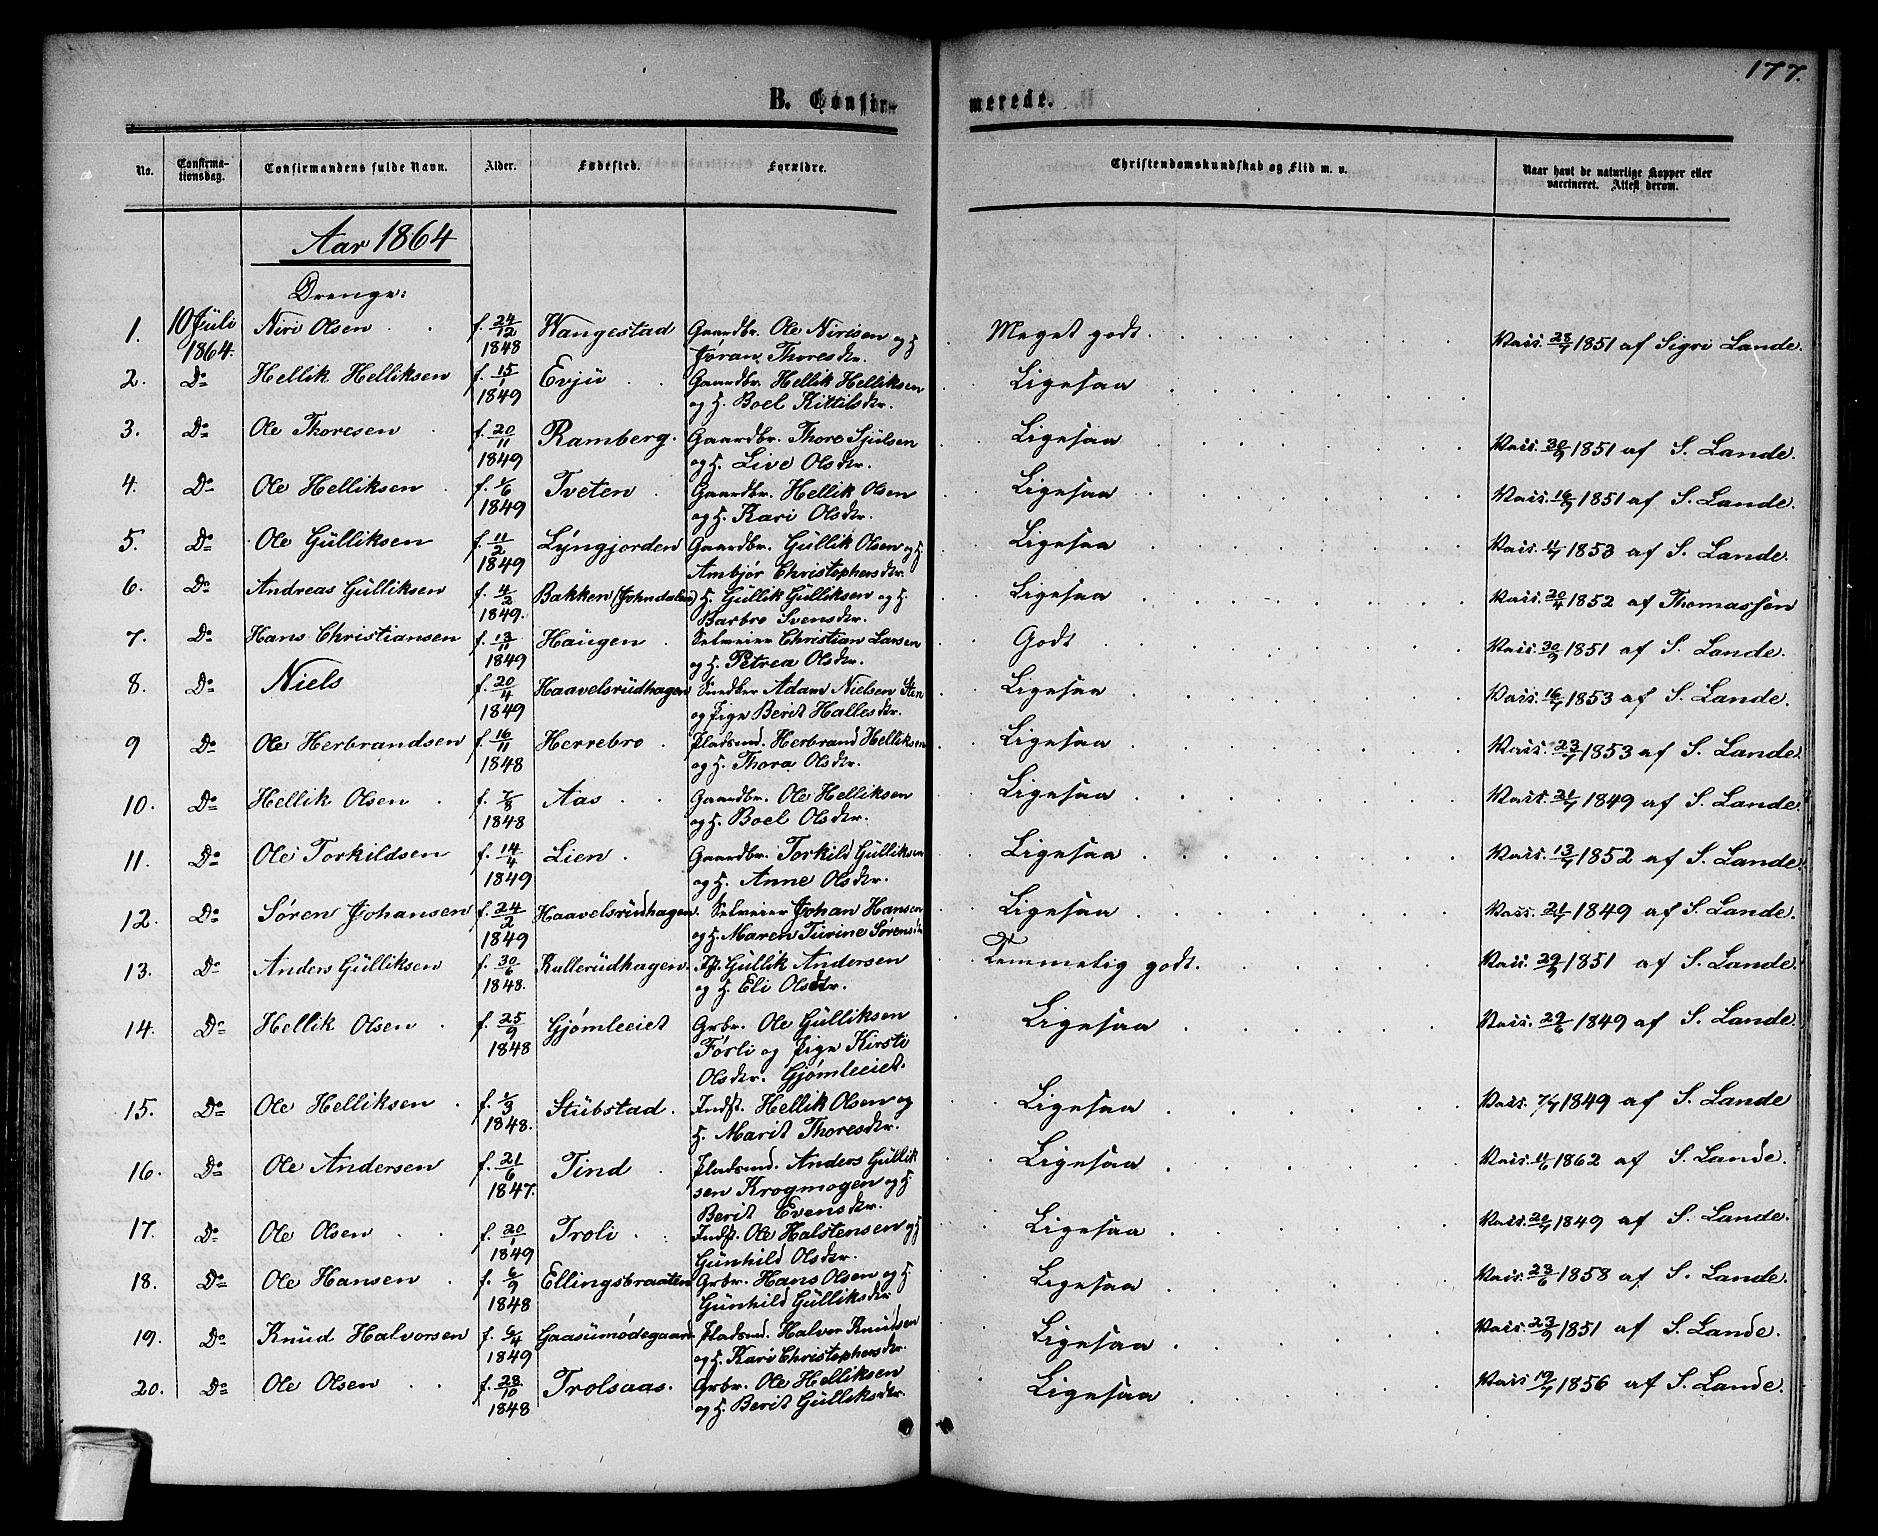 177.
B. Confirmerede.
No. Confirmationsdag. Confirmandens fulde Navn. Alder. Fødested. Forældre. Christendomskundskab og Flid m. v. Naar havt de naturlige Kopper eller vaccineret. Attest derom.
Aar 1864
Drenge:
1. 10 Juli 1864. Niri Olsen f. 24/12 1848 Wangestad Gaardbr. Ole Nirisen og H. Jøran Thoresdtr. Meget godt. Vacc. 28/7 1851 af Sigri Lande.
2. Do Hellik Helliksen f. 15/1 1849 Evju Gaardbr. Hellik Helliksen og H. Boel Kittilsdtr. Ligesaa
3. Do Ole Thoresen f. 20/11 1849 Ramberg. Gaardbr. Thore Sjulsen og H. Live Olsdtr. Ligesaa Vacc. 30/9 1851 af S. Lande.
4. Do Ole Helliksen f. 1/6 1849 Tveten Gaardbr. Hellik Olsen og H. Kari Olsdtr. Ligesaa Vacc. 16/9 1851 af S. Lande.
5. Do Ole Gulliksen f. 11/2 1849 Lyngjorden Gaardbr. Gullik Olsen og H. Ambjør Christophersdtr. Ligesaa Vacc. 11/7 1853 af S. Lande.
6. Do Andreas Gulliksen f. 4/2 1849. Bakken (Johndalen) H. Gullik Gulliksen og H. Barbro Svensdtr. Ligesaa Vacc. 20/4 1852 af Thomassen
7. Do Hans Christiansen f. 13/11 1849 Haugen Selveier Christian Larsen og H. Petrea Olsdtr. Godt Vacc. 30/9 1851 af S. Lande.
8. Do Niels f. 20/4 1849 Haavelsrudhagen Snedker Adam Nielsen Sten og Pige Berit Hallesdtr. Ligesaa Vacc. 16/7 1853 af S. Lande.
9 Do Ole Herbrandsen f. 16/11 1848 Herrebro Pladsmd. Herbrand Helliksen og H. Thora Olsdtr. Ligesaa Vacc. 23/7 1853 af S. Lande.
10. Do Hellik Olsen f. 7/8 1848 Aas Gaardbr. Ole Helliksen og H. Boel Olsdtr. Ligesaa Vacc. 21/7 1849 af S. Lande.
11. Do Ole Torkildsen f. 14/4 1849 Lien Gaardbr. Torkild Gulliksen og H. Anne Olsdtr. Ligesaa Vacc. 13/7 1852 af S. Lande.
12. Do Søren Johansen f. 24/2 1849 Haavelsrudhagen. Selveier Johan Hansen og H. Maren Turine Ligesaa Vacc. 21/7 1849 af S. Lande.
13. Do Anders Gulliksen f. 30/6 1848. Kullerudhagen. Ist. Gullik Andersen og H. Eli Olsdtr. Temmelig godt. Vacc. 29/9 1851 af S. Lande.
14. Do Hellik Olsen f. 25/9 1848 Gjømleeiet Grbr. Ole Gulliksen Førli og Pige Kirsti Olsdtr. Gjømleeiet. Ligesaa Vacc. 29/6 1849 af S. Lande.
15. Do Ole Helliksen f. 1/3 1848. Stubstad. Indst. Hellik Olsen og H. Marit Thoresdtr. Ligesaa Vacc. 7/7 1849 af S. Lande
16. Do Ole Andersen f. 21/6 1847. Tind Pladsmd. Anders Gulliksen Krogmogen og H. Berit Evensdtr. Ligesaa Vacc. 11/6 1862 af S. Lande.
17. Do Ole Olsen f. 20/1 1849 Troli Indst. Ole Halstensen og H. Gunhild Olsdtr. Ligesaa Vacc. 20/7 1849 af S. Lande.
18. Do Ole Hansen f. 6/9 1848 Ellingsbraaten Grbr. Hans Olsen og H. Gunhild Gulliksdtr Ligesaa Vacc. 23/6 1858 af S. Lande.
19. Do Knud Halvorsen f. 6/4 1849 Gaasumødegaard Pladsmd. Halvor Knudsen og H. Kari Christophersdtr. Ligesaa Vacc. 23/9 1851 af S. Lande.
20. Do Ole Olsen f. 28/10 1848 Trolsaas. Grbr. Ole Helliksen og H. Berit Gulliksdtr. Ligesaa Vacc 19/7 1856 af S. Lande.